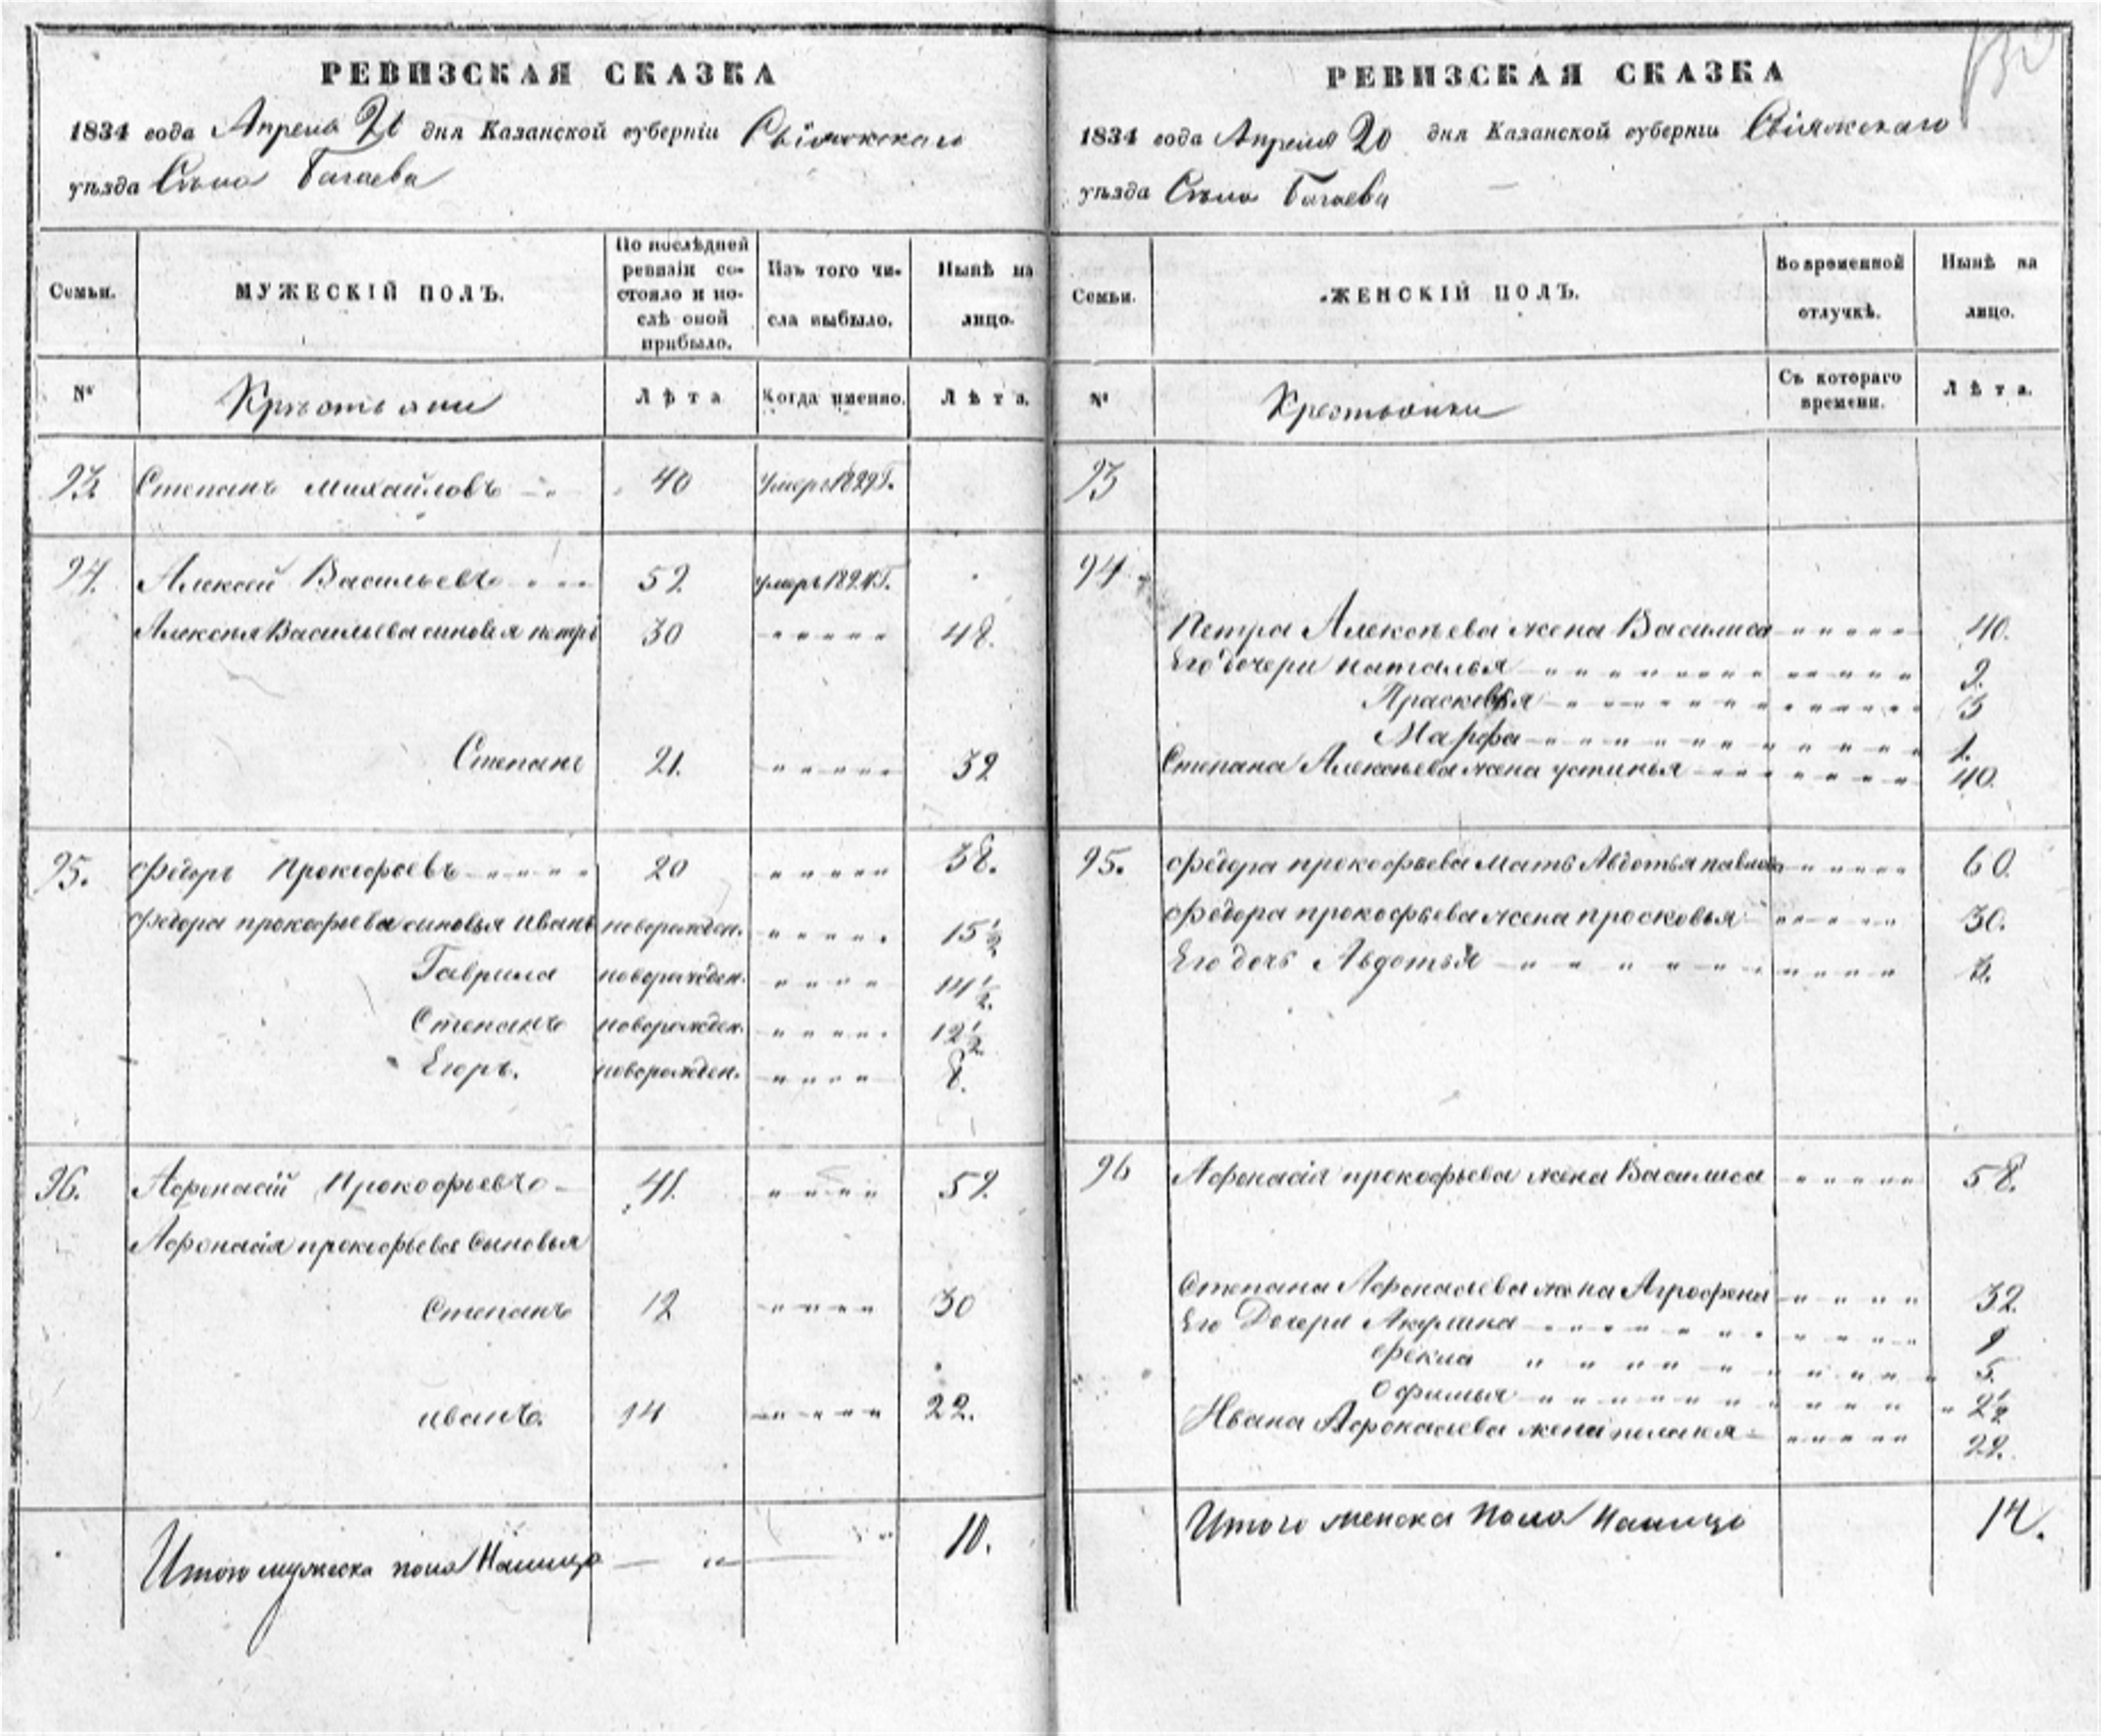 РЕВИЗСКАЯ СКАЗКА
1834 года Апреля 20 дня Казанской губерніи Свіяжскаго
уѣзда Села Багаева
Семьи.
МУЖЕСКІЙ ПОЛЪ.
По послѣдней
ревизіи со-
стояло и по-
слѣ оной
прибыло.
Изъ того чи-
сла выбыло.
Нынѣ на
лицо.
№
Крѣстьяни
Лѣта
Когда именно.
Лѣта.
93. Степанъ Михайловъ 40 умеръ 1829 Г.
94. Алексѣй Васильевъ 52 умеръ
Алексѣя Васильева сыновья петръ 30 48.
Степанъ 21. 32
95. Федоръ Прокофьевъ 20 38.
Федора прокофьева сыновья Иванъ новорожден. 15½
Гаврила новорожден. 14½.
Степанъ новорожден. 12½
Егоръ. новорожден. 8.
96. Афонасій Прокофьевъ 41. 59.
Афонасія прокофьева Сыновья
Степанъ 12 30
иванъ. 14 22.
Итого мужеска пола Налицо 10.
РЕВИЗСКАЯ СКАЗКА
1834 года Апреля 20 дня Казанской губерніи Свіяжскаго
уѣзда Села Багаева
Семьи.
ЖЕНСКІЙ ПОЛЪ.
Во временной
отлучкѣ.
Нынѣ на
лицо.
№
Крестьянки
Съ котораго
времени.
Лѣта.
93
94
Петра Алексѣева жена Василиса 40.
Его дочери наталья 9.
Прасковья 3
Марфа 1.
Степана Алексѣева жена устинья 40.
95. Федора прокофьева Мать Авдотья павлова 60.
Федора прокофьева жена просковья 30.
Его дочь Авдотья 3.
96 Афонасія прокофьева жена Василиса 58.
Степана Афонасьева жена Агрофена 32.
Его Дочери Акулина 9
Фекла 5.
Офимья 2½
Ивана Афонасьева жена пелакея 22.
Итого женска Пола Налицо 14.